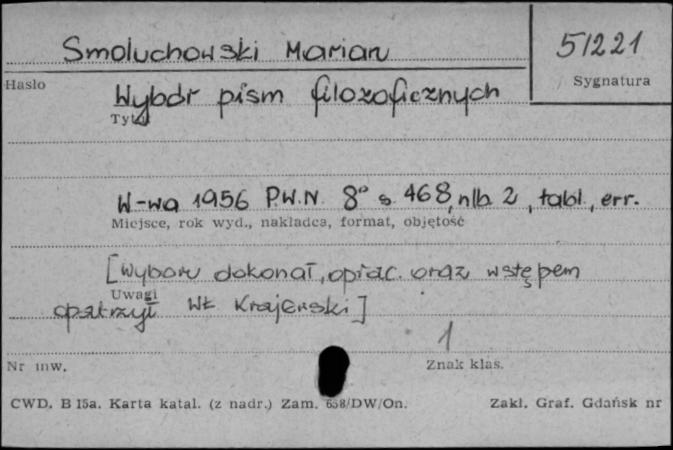 Smoluchowski Marian
51221
Hasło
Sygnatura
Wybór pism filozoficznych
Tytuł
W-wa 1956 P.W.N. 8° s. 468, nlb. 2, tabl., err.
Miejsce, rok wyd., nakładca, format, objętość
[Wyboru dokonał, oprac. oraz wstępem
Uwagi
opatrzył Wł. Krajewski]
1
Nr inw.
Znak klas.
CWD. B 15a. Karta katal. (z nadr.) Zam. 658/DW/On.
Zakł. Graf. Gdańsk nr